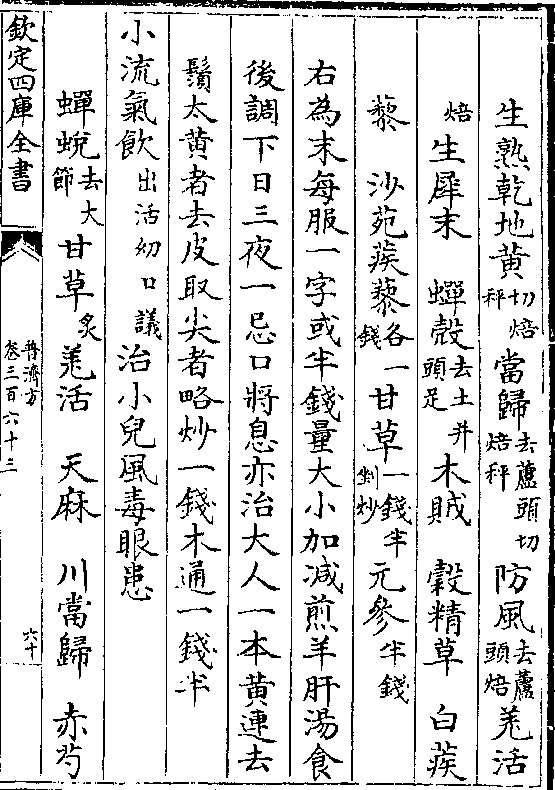 生熟乾地黄切焙秤 當歸去蘆頭切焙秤 防風去蘆頭焙 羗活
焙 生犀末 蟬殼去土并頭足 木賊 穀精草 白蒺
藜 沙苑蒺藜各一錢 甘草一錢半剉炒 元參半錢
右為末每服一字或半錢量大小加減煎羊肝湯食
後調下日三夜一忌口將息亦治大人一本黄連去
鬚太黄者去皮取尖者略炒一錢木通一錢半
小流氣飲出活幼口議治小兒風毒眼患
蟬蛻去大節 甘草炙 羗活 天麻 川當歸 赤芍
欽定四庫全書
普濟方
卷三百六十三
六十